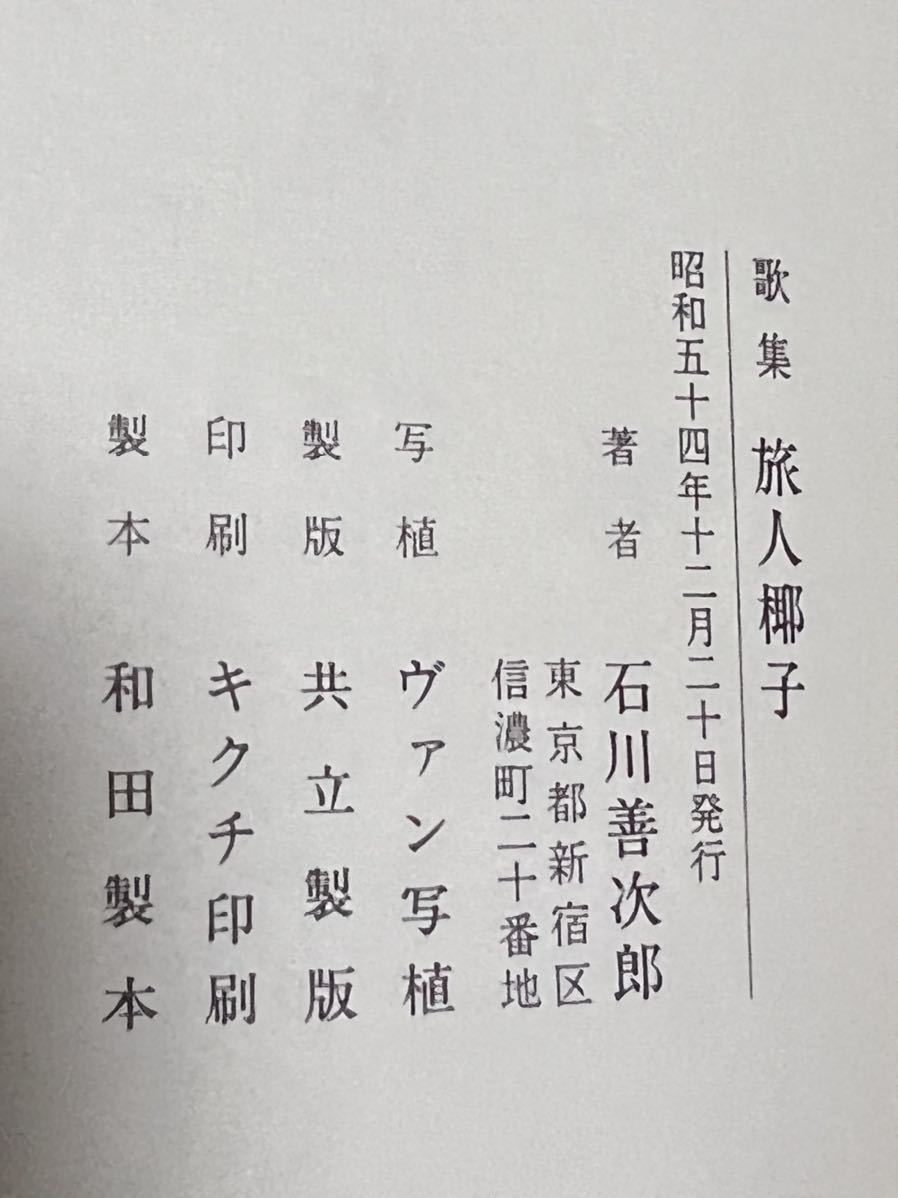 歌集 旅人椰子
昭和五十四年十二月二十日発行
著者 石川善次郎
東京都新宿区
信濃町二十番地
写植 ヴァン写植
製版 共立製版
印刷 キクチ印刷
製本 和田製本